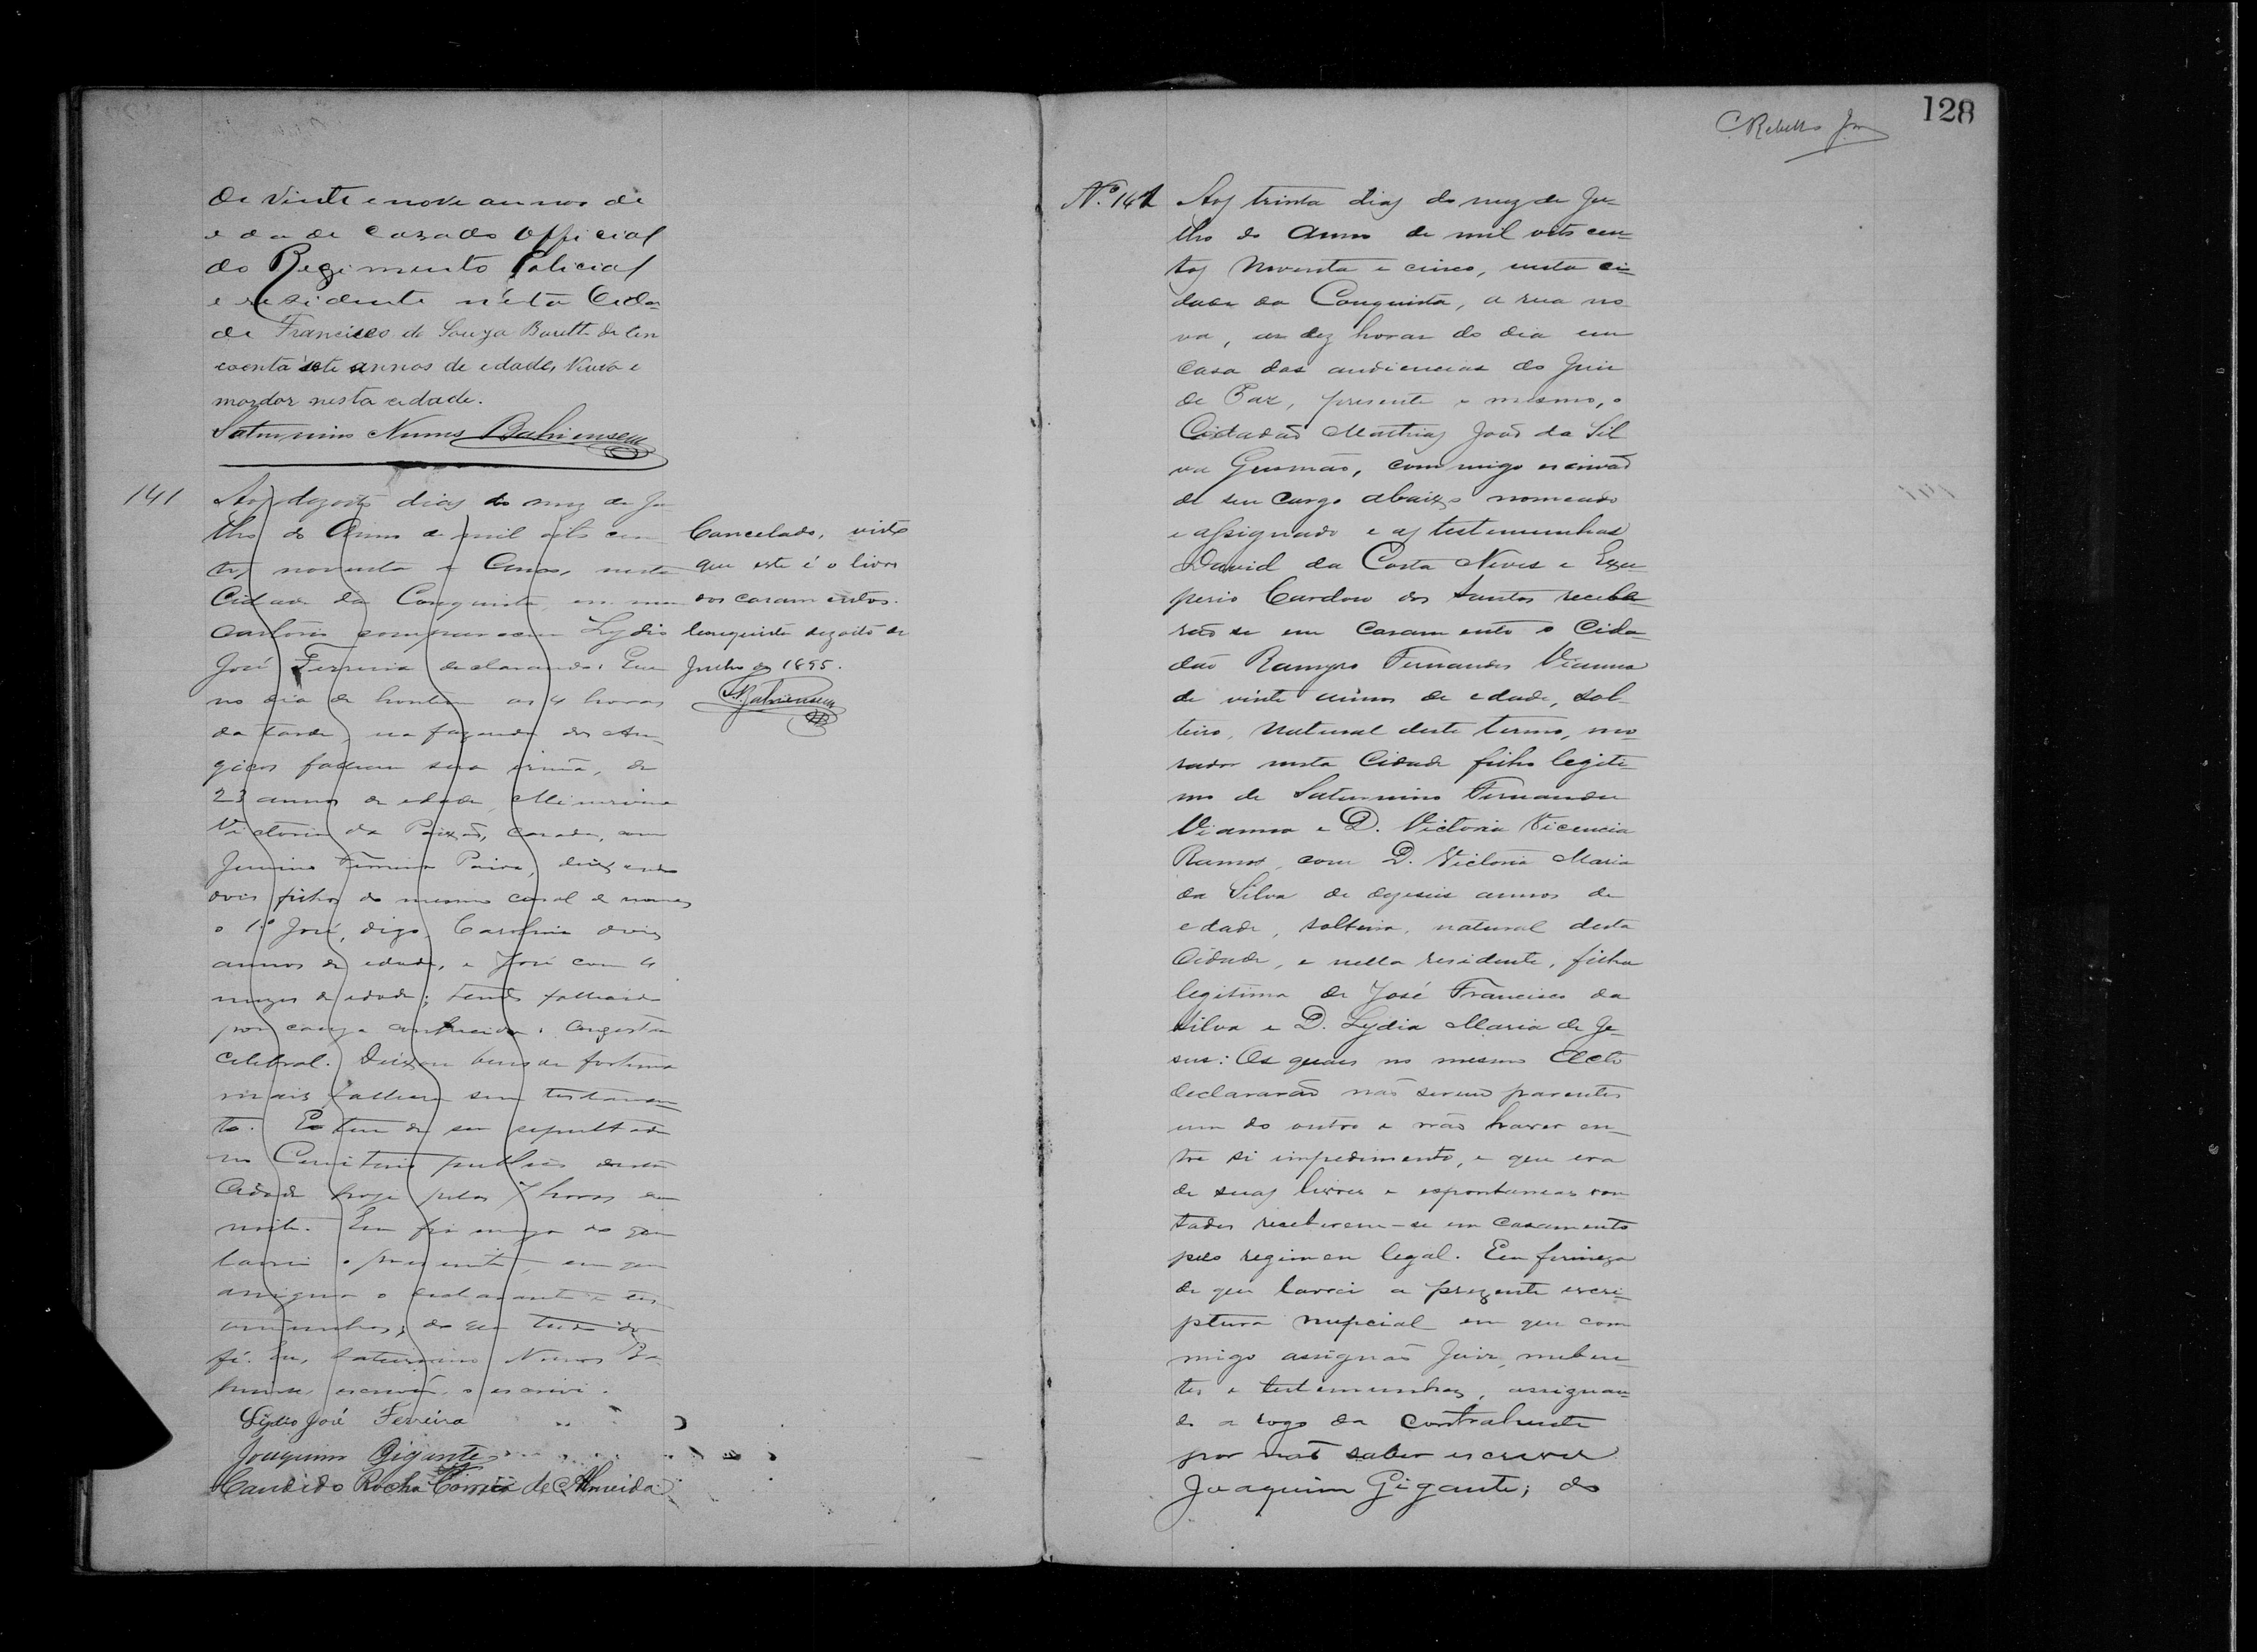 de vinte e nove annos de
edade cazado official
do Regimento Policial
e residente nésta Cida-
de Francisco de Souza Baretto de cin
coenta sete annos de edade, Viuvo e
morador nesta cidade.
Saturnino Nunes Bahiense
141
Aos dezoito dias do mez de Ju
lho do Anno de mil oito cen
tos noventa e Cinco, nesta
Cidade da Conquista, em meu
Cartorio compareceu Lydio
José Ferreira declarando: Que
no dia de hontem as 4 horas
da tarde, na fazenda dos An-
gicos falleceu sua irmã, de
23 annos de edade,
Victoria da Paixão, casada, com
Ferreira Paiva, deixando
dois filhos do mesmo casal de nomes
o 1º José, digo, Carolina dois
annos de edade, e José com 4
mezes de edade; tendo fallecido
por cauza conhecida: Congestão
celebral. Deixou bens da fortuna
mais falleceu sem testamen-
to. E tem de ser sepultada
no Cemiterio publico desta
Cidade hoje pelas 7 horas da
noite. Em firmeza do que
lavrei o presente, em que
assigna o declarante e tes-
temunhas; do que tudo dou
fé. Eu, Saturnino Nunes Ba-
hiense, escrivão, o escrivi.
Lydio José Ferreira
Joaquim Gigante
Candido Rocha Correia de Almeida
Cancelado, visto
que este é o livro
dos casamentos.
Conquista dezoito de
Julho de 1895.
S. Bahiense
128
C Rebello Jor
Nº. 141
Aos trinta dias do mez de Ju-
lho do Anno de mil oito cen-
tos Noventa e cinco, nesta ci-
dade da Conquista, a rua no
va, as dez horas do dia em
Casa das audiencias do Juiz
de Paz, presente o mesmo, o
Cidadão Mathias João da Sil
va Gusmão, commigo escrivão
de seu cargo abaixo nomeado
e assignado e as testemunhas
David da Costa Neves e Exu
perio Cardoso dos Santos recebe-
rão se em Casamento o Cida-
dão Ramyro Fernandes Vianna
de vinte annos de edade, sol-
teiro, Natural deste termo, mo-
rador nesta Cidade filho legiti-
mo de Saturnino Fernandes
Vianna e D. Victoria Vicencia
Ramos, com D. Victoria Maria
da Silva de dezeseis annos de
edade, solteira, natural desta
Cidade, e nella residente, filha
legitima de José Francisco da
Silva e D. Lydia Maria de Je-
sus: Os quaes no mesmo Acto
declararão não serem parentes
um do outro e não haver en-
tre si impedimento, e que era
de suas livres e espontaneas von
tades receberem-se em casamento
pelo regimen legal. Em firmeza
de que lavrei a prezente escri-
ptura nupcial em que com
migo assignão Juiz, nuben-
tes e testemunhas, assignan-
do a rogo da contrahente
por não saber escrever
Joaquim Gigante; do